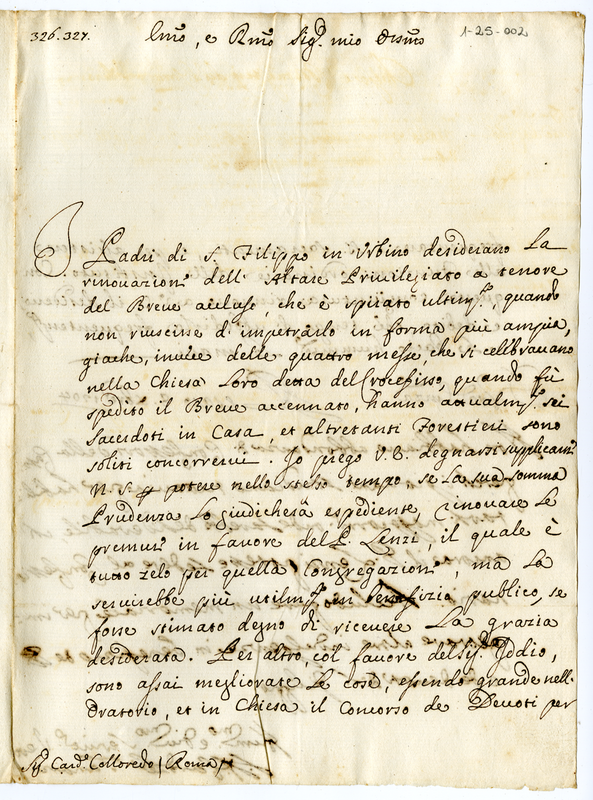 326.327.
Emo, e Rmo Sig.r mio Ossmo
1-25-002
I Padri di S. Filippo in Urbino desiderano la
rinovazione dell'Altare Privilegiato a tenore
del Breve accluso, che è spirato ultimte, quando
non riuscisse d'impetrarlo in forma più ampia,
giache, invece delle quattro messe che si cellbravano
nella Chiesa loro detta del Crocefisso, quando fù
spedito il Breve accennato, hanno attualmte sei
Sacerdoti in Casa, et altretanti Forestieri sono
soliti concorrervi. Io priego V.E. degnarsi supplicarne
N.S. potere nello stesso tempo, se la sua somma
Prudenza lo giudicherà espediente, rinovare le
premure in favore del P. Lenzi, il quale è
tutto zelo per quella Congregazione, ma la
servirebbe più utilmte in publico, se
fosse stimato degno di ricevere la grazia
desiderata. Per altro, col favore del Sig.re Iddio,
sono assai megliorate le cose, essendo grande nell'
Oratorio, et in Chiesa il Concorso de Devoti per
Sig. Card. Colloredo / Roma /